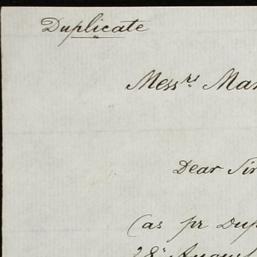 Duplicate
Messrs Mar
Dear Sir
(as pr Dup
28 August